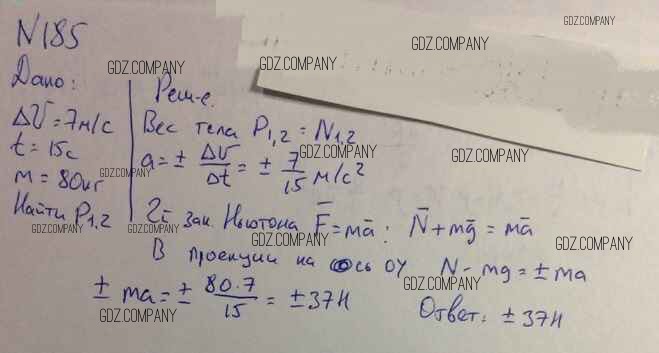 N185
Дано:
ΔV = 7 м/с
t = 15с
m = 80кг
Найти P1,2
Реш-е.
Вес тела P1,2 = N1,2
a = ± ΔV/Δt = ± 7/15 м/с²
2й зак. Ньютона F̄ = mā : N̄ + mḡ = mā
В проекции на ось OY N - mg = ± ma
± ma = ± 80·7/15 = ± 37Н
Ответ: ± 37Н
GDZ.COMPANY
GDZ.COMPANY
GDZ.COMPANY
GDZ.COMPANY
GDZ.COMPANY
GDZ.COMPANY
GDZ.COMPANY
GDZ.COMPANY
GDZ.COMPANY
GDZ.COMPANY
GDZ.COMPANY
GDZ.COMPANY
GDZ.COMPANY